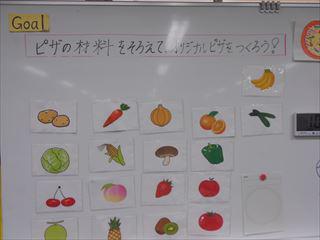 Goal
ピザの材料をそろえて、オリジナルピザをつくろう!